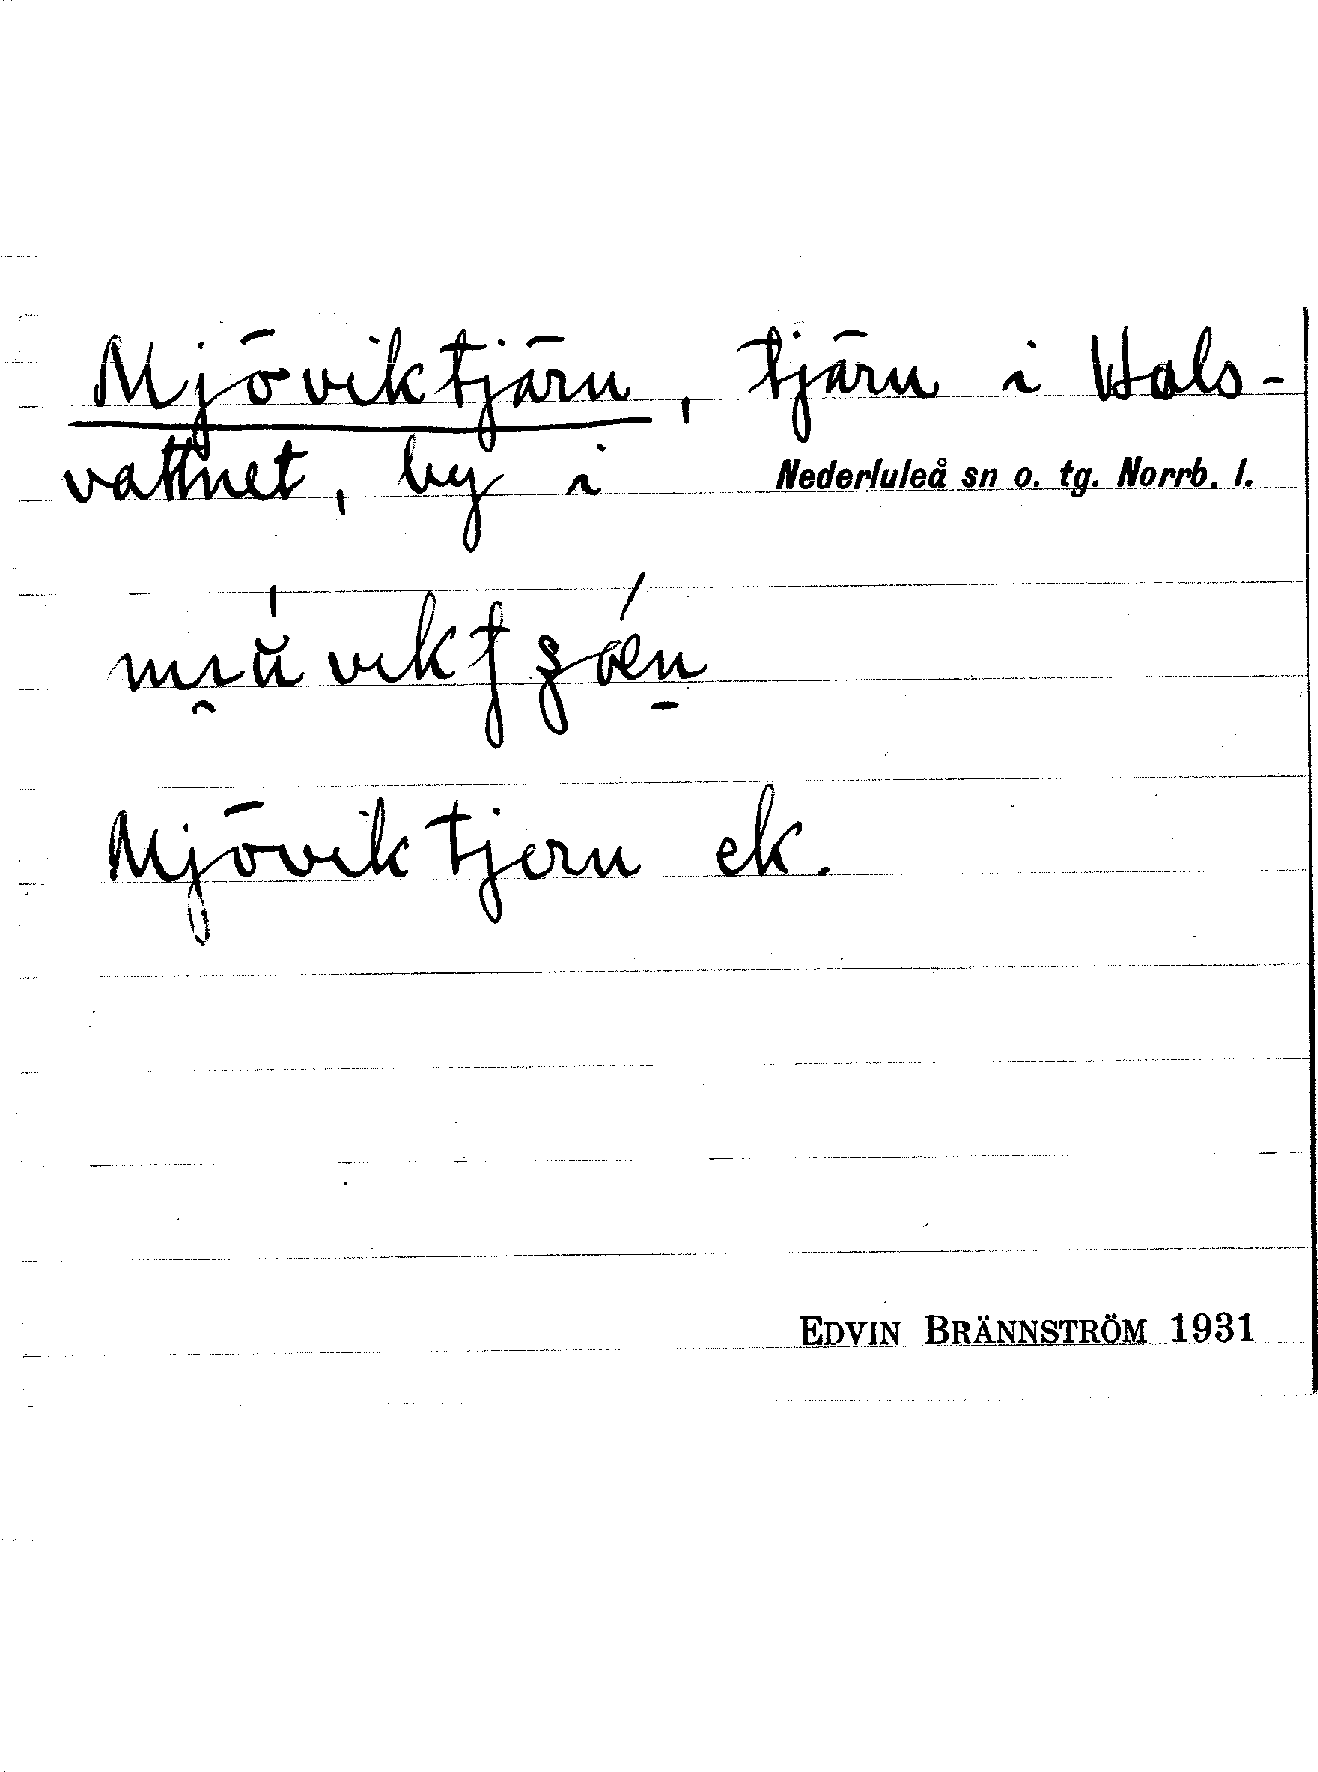 Mjöviktjärn, tjärn i Hals-
vattnet, by i Nederluleå sn o. tg. Norrb. l.
Mjöviktjern ek.
EDVIN BRÄNNSTRÖM 1931